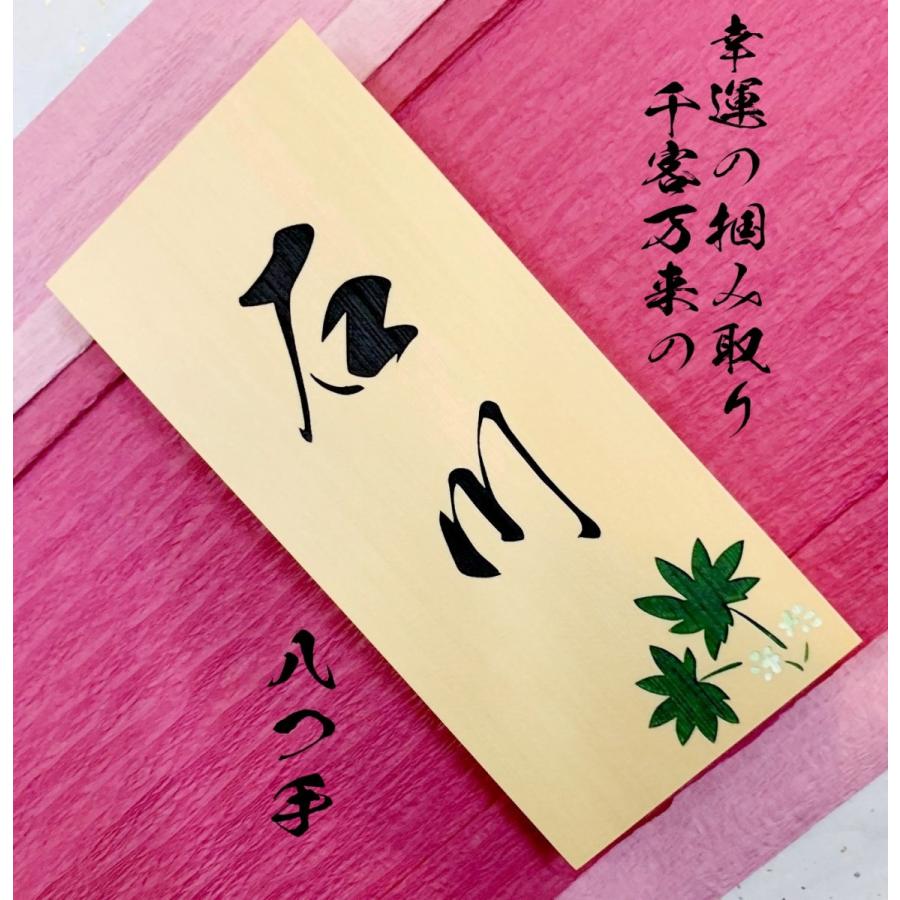 幸運の掴み取り
千客万来の
石川
八つ手